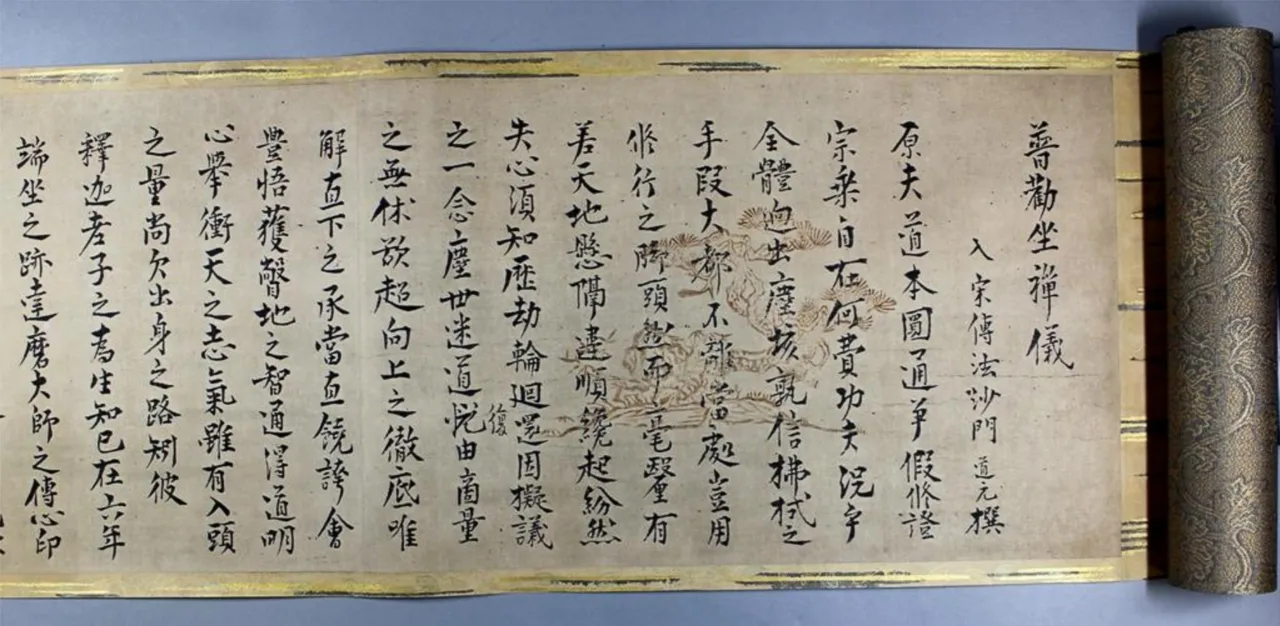 普勸坐禪儀
入宋傳法沙門 道元撰
原夫道本圓通爭假脩證
宗乘自在何費功夫況乎
全體逈出塵埃孰信拂拭之
手段大都不離當處豈用
修行之脚頭然而毫釐有
差天地懸隔違順纔起紛然
失心須知歷劫輪廻還因擬議
復
之一念塵世迷道恱由商量
之無休欲超向上之徹底唯
解直下之承當直饒誇會
豐悟獲瞥地之智通得道明
心擧衝天之志氣雖有入頭
之量尚欠出身之路矧彼
釋迦老子之為生知已在六年
端坐之跡達磨大師之傳心印